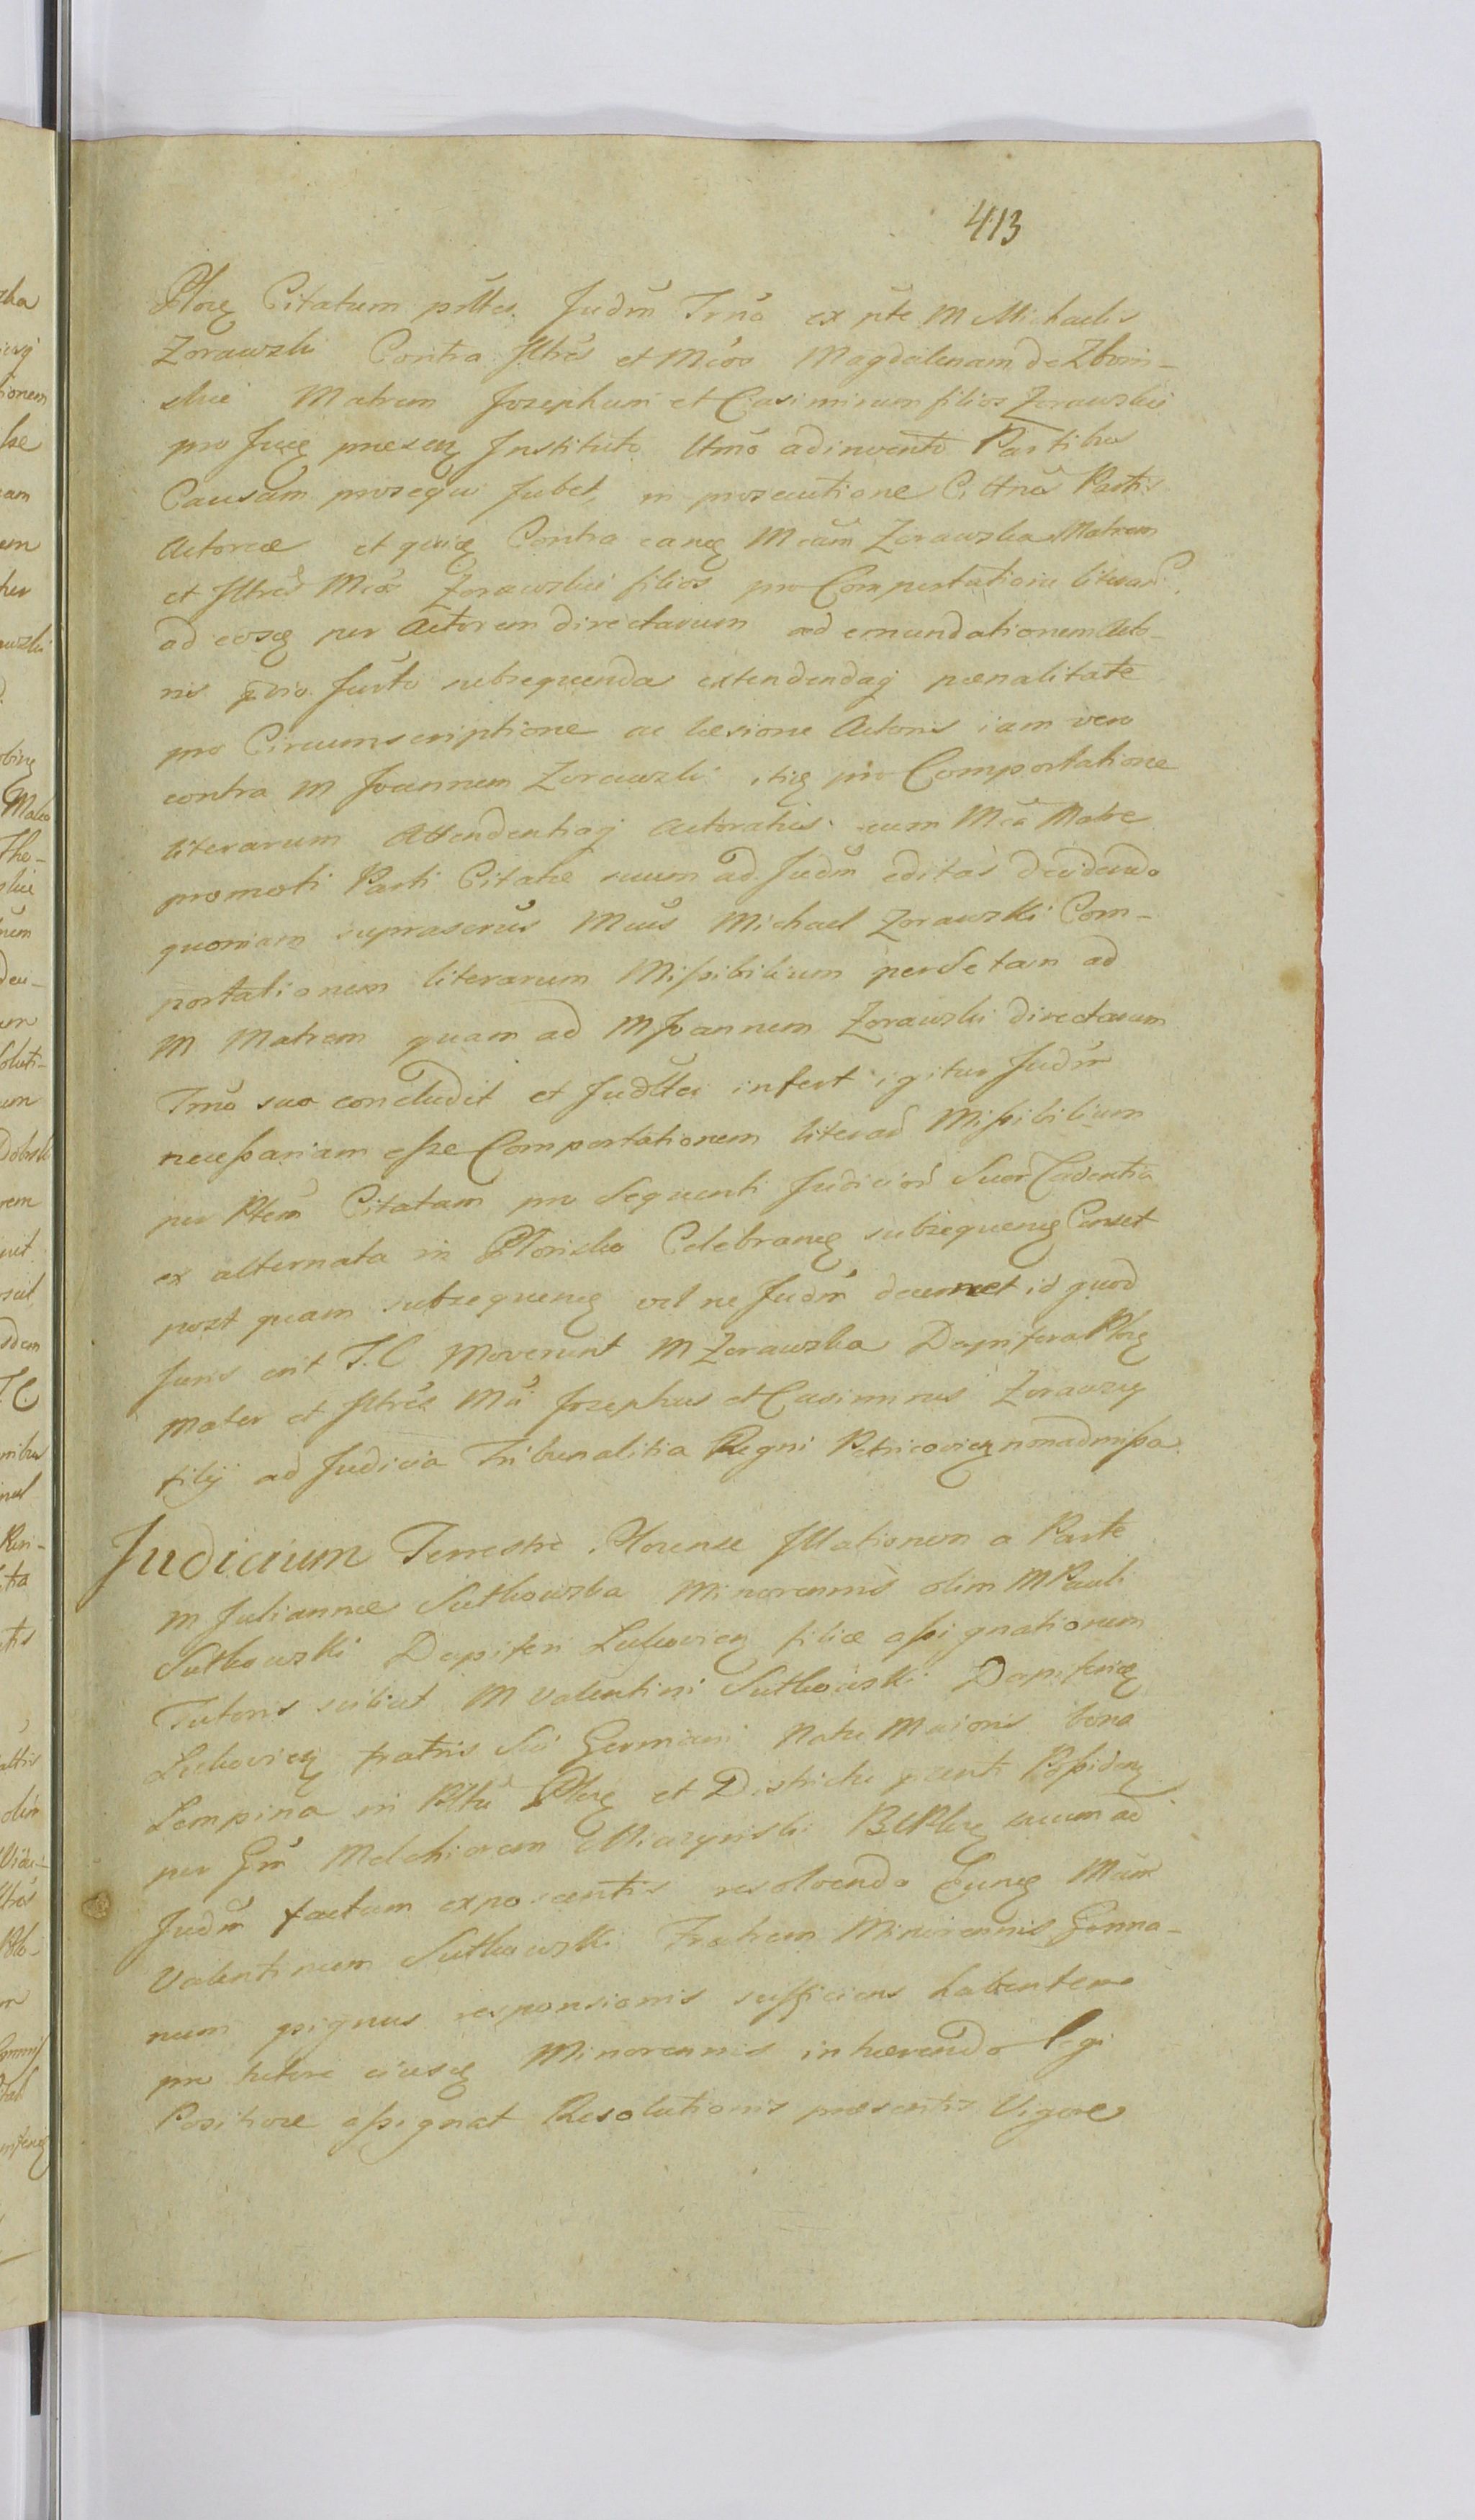 413
Plocę Citatum pŕltes. Judm̃ Trńo ex pt̃e M Michaelis
Zorawski Contra Jltrẽs et Mẽos Magdalenam de Zboin-
skie Matrem Josephum et Casimirum filios Zorawskie
pro Jucę praesenę Instituto Utm̃o adinvento Partibus
Causam prosequi Jubet, in prosecutione Partis
Actoreae et Contra eanę Mẽam Zorawska Matrem
et Jltrẽs Mẽos Zorawskie filios pro Comportatione literar̃.
ad eosę per Actorem directarum ad emundationem Acto-
ris Jur̃to subsequenda extendendaq paenalitate
pro Circumscriptione ac laesione Actoris iam vero
contra M Joannem Zorawski itię pro Comportatione
literarum Attendentiaq Actoratus cum Mẽa Matre
promoti Parti Citatae suum ad Judm̃ editas decidendo
quoniam suprascr̃us Mẽus Michael Zorawski Com-
portationem literarum Missibilium per se tam ad
M Matrem quam ad M Joannem Zorawski directarum
Trm̃o suo concludit et Judltr̃ infert igitur Judm̃
necessariam esse Comportationem literar̃ Missibilium
per Ptem̃ Citatam pro Sequenti Judicior̃ Suor̃ Cadentia
ex alternata in Plonsko Celebranę subsequenę Censet
post quam subsequenę vel ne Judm̃ decernet id quod
Juris erit T.C. Moverunt M Zorawska Dapifera Plocę
Mater et Jltrẽs Mẽi Josephus et Casimirus Zorawscy
filij ad Judicia Tribunalitia Regni Petricovieņ non admissa.
Judicium Terrestre Plocense Illationem a Parte
M Juliannae Sutkowska Minorennis olim M Pauli
Sutkowski Dapiferi Lukovieņ filiae assignationem
Tutoris scilicet M Valentini Sutkowski Dapiferię
Lukovieņ fratris Sui Germani Natu Maioris bona
Lempina in Pltu Plocę et Districtu pzenti Possideņ
per Gm̃ Melchiorem Miszynski BCPlocę suum ad
Judm̃ factum exposcentis resolvendo Eunę Mẽum
Valentinum Sutkowski Fratrem Minorennis Germa-
num pignus responsionis sufficiens habentem
pro tutore eiusę Minorennis inhaerendo Legi
Positivae assignat Resolutionis praesentis Vigore